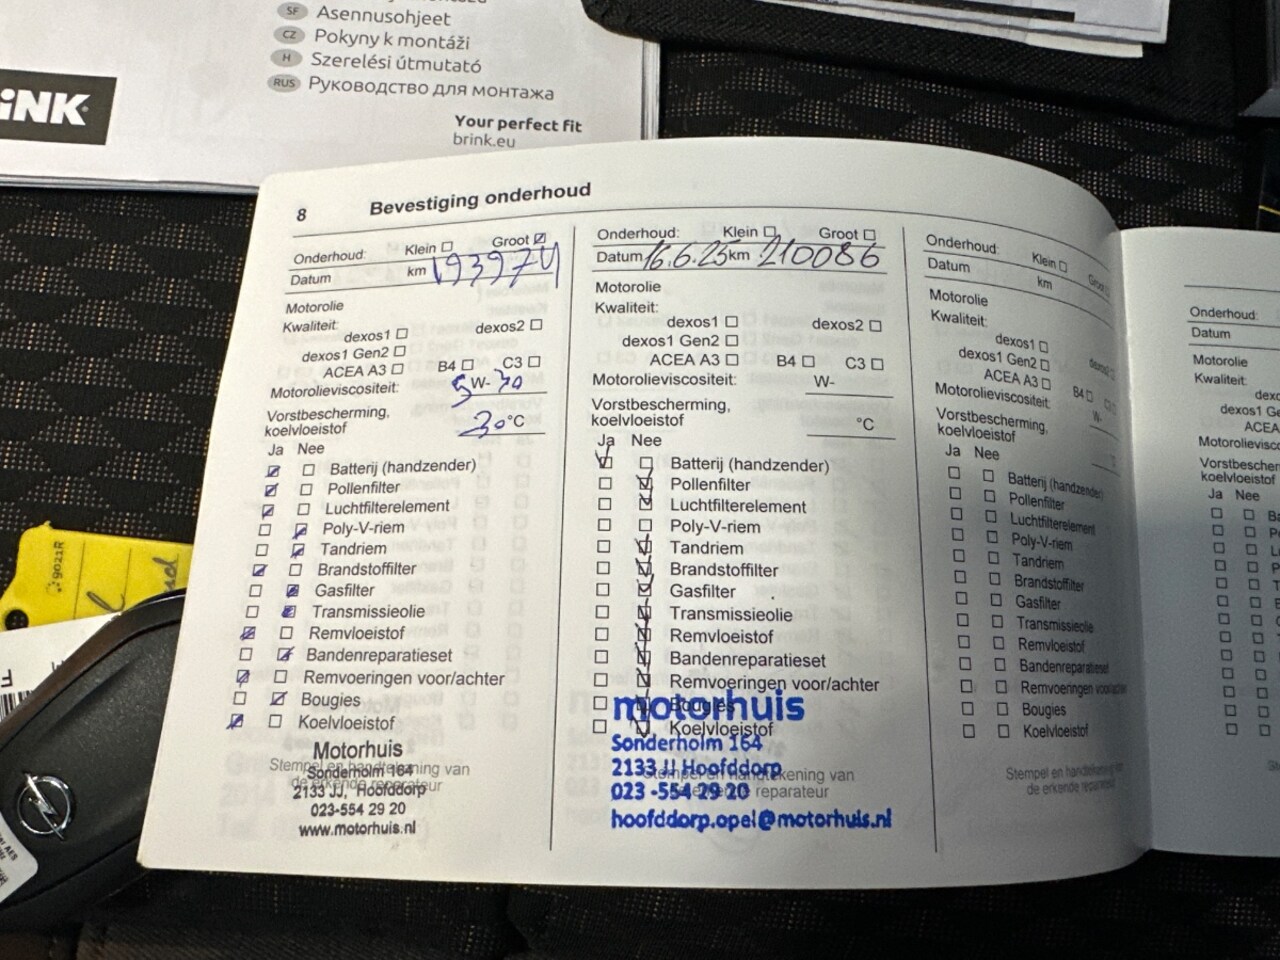 SF Asennusohjeet
CZ Pokyny k montáži
H Szerelési útmutató
RUS Руководство для монтажа
iNK
Your perfect fit
brink.eu
8 Bevestiging onderhoud
Onderhoud: Klein Groot
Datum km 193974
Motorolie
Kwaliteit:
dexos1 dexos2
dexos1 Gen2
ACEA A3 B4 C3
Motorolieviscositeit: 5 W- 30
Vorstbescherming,
koelvloeistof 30 °C
Ja Nee
Batterij (handzender)
Pollenfilter
Luchtfilterelement
Poly-V-riem
Tandriem
Brandstoffilter
Gasfilter
Transmissieolie
Remvloeistof
Bandenreparatieset
Remvoeringen voor/achter
Bougies
Koelvloeistof
Stempel en handtekening van
de erkende reparateur
Motorhuis
Sonderholm 164
2133 JJ, Hoofddorp
023-554 29 20
www.motorhuis.nl
Onderhoud: Klein Groot
Datum 16.6.25 km 210086
Motorolie
Kwaliteit:
dexos1 dexos2
dexos1 Gen2
ACEA A3 B4 C3
Motorolieviscositeit: W-
Vorstbescherming,
koelvloeistof °C
Ja Nee
Batterij (handzender)
Pollenfilter
Luchtfilterelement
Poly-V-riem
Tandriem
Brandstoffilter
Gasfilter
Transmissieolie
Remvloeistof
Bandenreparatieset
Remvoeringen voor/achter
Bougies
Koelvloeistof
Stempel en handtekening van
de erkende reparateur
motorhuis
Sonderholm 164
2133 JJ Hoofddorp
023 -554 29 20
hoofddorp.opel@motorhuis.nl
Onderhoud: Klein Groot
Datum km
Motorolie
Kwaliteit:
dexos1 dexos2
dexos1 Gen2
ACEA A3 B4
Motorolieviscositeit: W-
Vorstbescherming,
koelvloeistof
Ja Nee
Batterij (handzender)
Pollenfilter
Luchtfilterelement
Poly-V-riem
Tandriem
Brandstoffilter
Gasfilter
Transmissieolie
Remvloeistof
Bandenreparatieset
Remvoeringen voor/achter
Bougies
Koelvloeistof
Stempel en handtekening van
de erkende reparateur
Onderhoud:
Datum
Motorolie
Kwaliteit:
dexos1 Ge
ACEA
Motorolievisco
Vorstbescherm
koelvloeistof
Ja Nee
9021R